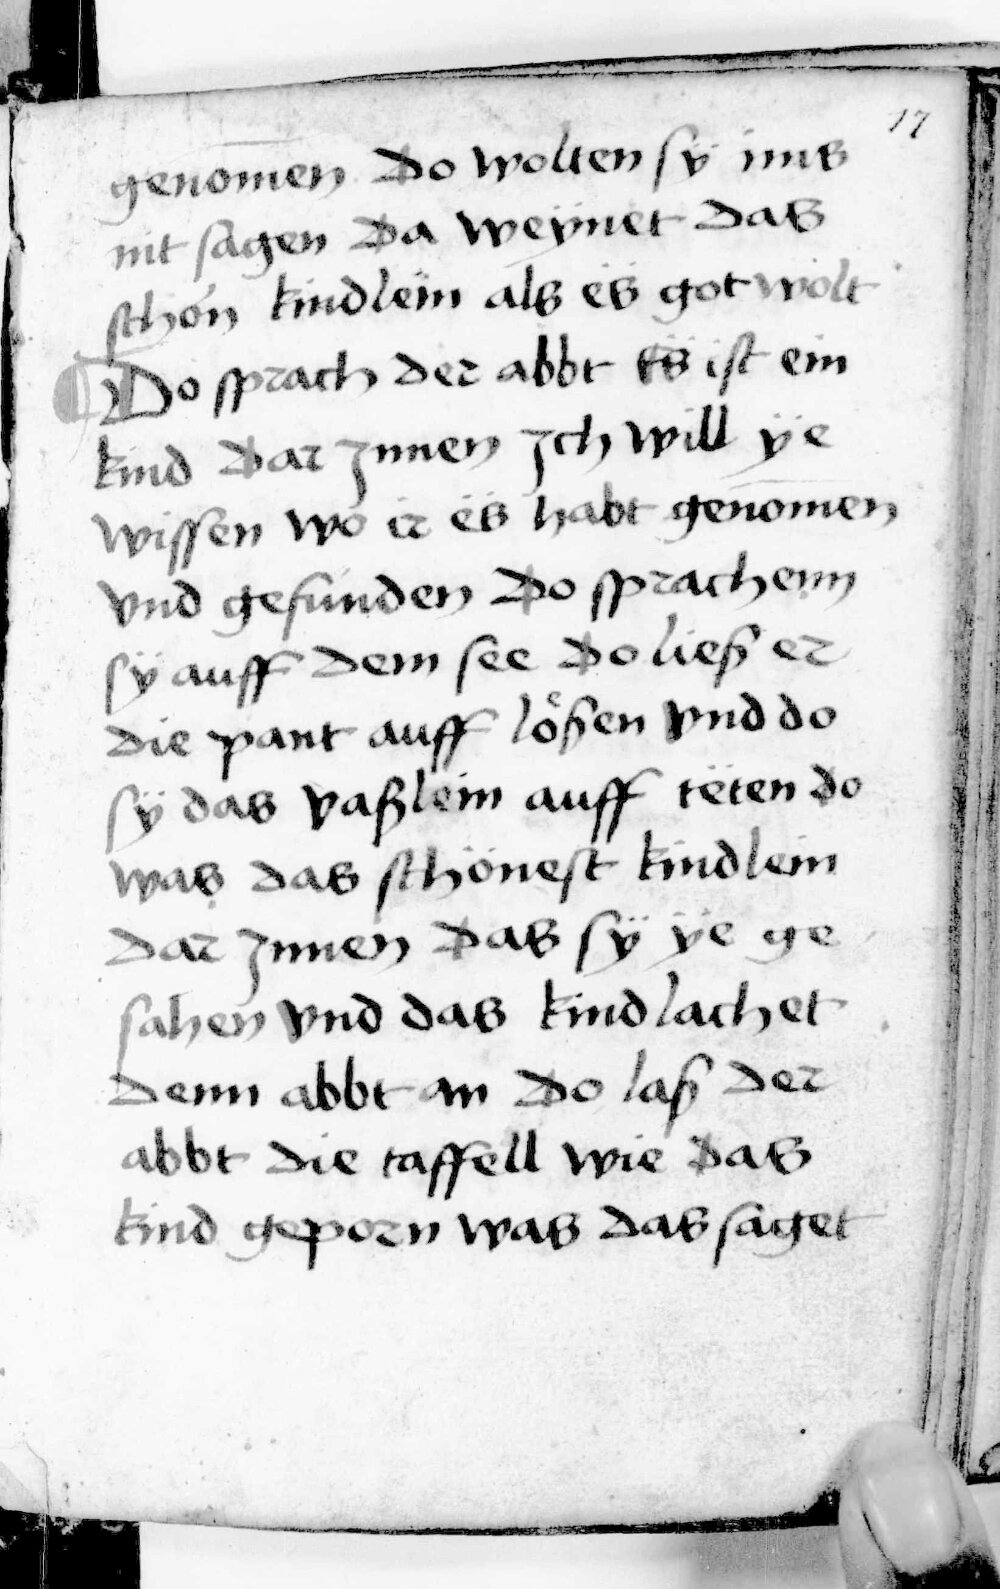 17
genōmen Do wolten sÿ ims
nit sagen Da weÿnet das
schón kindlein als ës got wolt
Do sprach der abbt Es ist ein
kind dar Jnnen Jch will ÿe
wissen wo ir ës habt genōmen
vnd gefúnden Do sprachenn
sÿ auff dem see Do ließ er
die pant auff lößen vnd do
sÿ das vaßlein auff tëten do
was das schönest kindlein
dar Jnnen Das sÿ ÿe ge
sahen vnd das kind lachet
denn abbt an Do laß der
abbt die taffell wie das
kind geporn was das saget